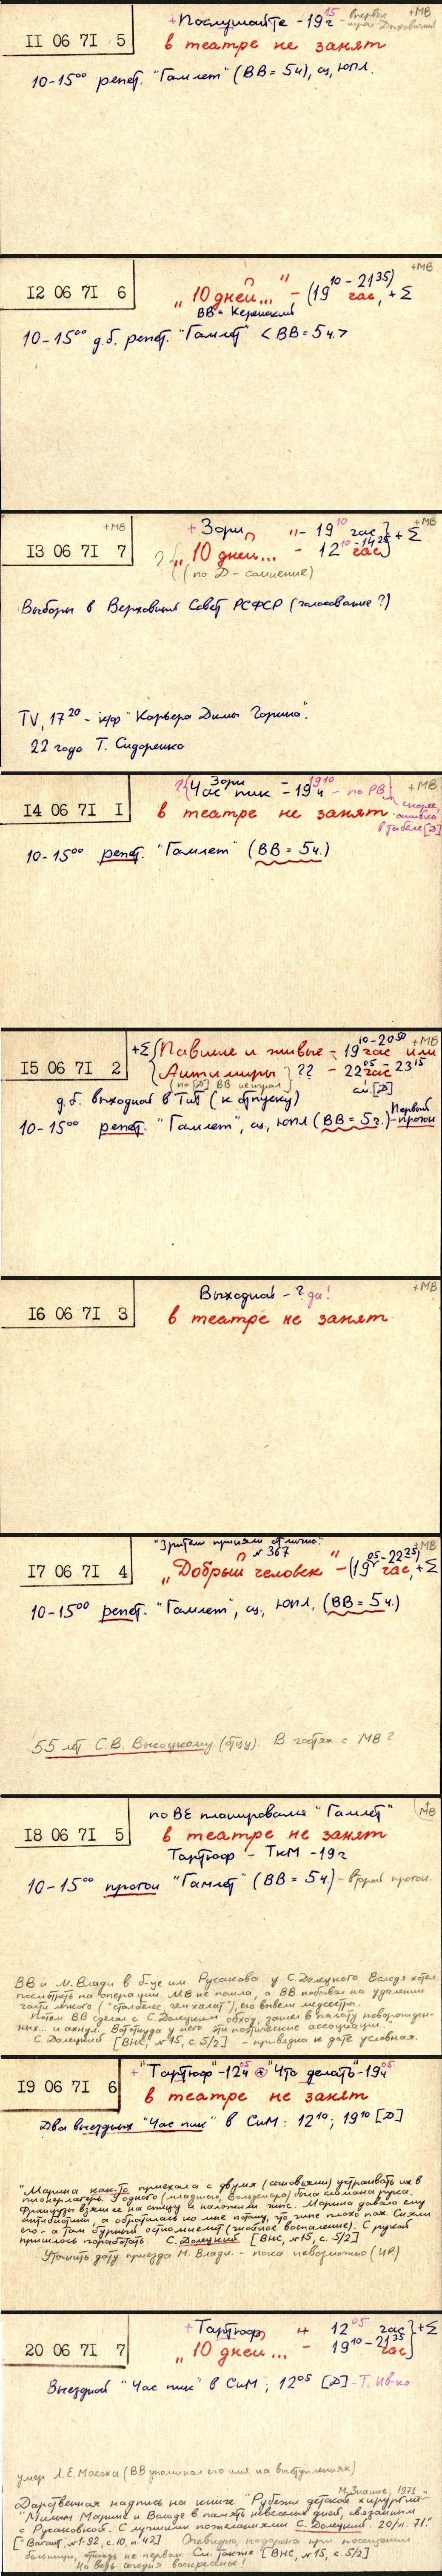 +MB
+ Послушайте - 19 15 ч - впервые
II 06 7I 5
в театре не занят
10-15 00 репет. "Гамлет" (ВВ = 5ч), сц, ЮПЛ.
+MB
I2 06 7I 6
"10 дней..." - (19 10 - 21 35) час, + Σ
ВВ = Керенский
10-15 00 д.б. репет. "Гамлет" <ВВ = 5ч.>
+МВ
+МВ
+ Зори " - 19 10 час } + Σ
I3 06 7I 7
? { "10 дней... - 12 10 - 14 25 час
(по Д - сомнение)
Выборы в Верховный Совет РСФСР (голосование?)
TV, 17 20 - к/ф "Карьера Димы Горина".
22 года Т. Сидоренко
Зори
+МВ
? { Час пик - 19 10 ч - по РВ }
I4 06 7I I
в театре не занят
скорее, ошибка в табеле [Д]
10-15 00 репет. "Гамлет" (ВВ = 5ч.)
+МВ
+Σ { Павшие и живые - 19 10 - 20 50 час или
I5 06 7I 2
Антимиры } ?? - 22 05 - 23 15 час
(по [Д] ВВ не играл)
см. [Д]
д.б. выходной в ТиТ (к отпуску)
10-15 00 репет. "Гамлет", сц, ЮПЛ (ВВ = 5ч.) - Первый прогон
Выходной - ? да!
+МВ
I6 06 7I 3
в театре не занят
"Зрители приняли отлично."
N 367
+МВ
I7 06 7I 4
"Добрый человек" - (19 05 - 22 25) час, + Σ
10-15 00 репет. "Гамлет", сц, ЮПЛ, (ВВ = 5ч.)
55 лет С.В. Высоцкому (отцу). В гостях с МВ?
по ВЕ планировался "Гамлет"
+ МВ
I8 06 7I 5
в театре не занят
Тартюф - ТКМ - 19ч
10-15 00 прогон "Гамлет" (ВВ = 5ч) - второй прогон.
ВВ и М. Влади в б-це им. Русакова у С. Долецкого. Володя хотел
посмотреть на операции. МВ не пошла, а ВВ побывал на удалении
части легкого ("стал белее, чем халат"), его вывели медсестры.
Потом ВВ сделал с С. Долецким обход, зашел в палату новорожден-
ных... и ахнул. Вот откуда у него эти поэтические ассоциации.
С. Долецкий [ВНС, N 15, с. 5/2] - привязка к дате условная.
+ "Тартюф" - 12 05 ч + "Что делать" - 19 05 ч
I9 06 7I 6
в театре не занят
Два выездных "Час пик" в СиМ: 12 10; 19 10 [Д]
"Марина как-то приехала с двумя (сыновьями) устраивать их в
пионерлагерь. У одного (младшего, Володьки) была сломана рука.
Французы взяли ее на спицу и наложили гипс. Марина давала ему
антибиотики, а обратилась ко мне потому, что гипс плохо пах. Сняли
его - а там бурный остеомиелит (гнойное воспаление). С рукой
пришлось поработать. С. Долецкий [ВНС, N 15, с. 5/2]
Уточнить дату приезда М. Влади - пока невозможно (ИР)
+ Тартюф " 12 05 час } + Σ
20 06 7I 7
"10 дней... - 19 10 - 21 35 час
Выездной "Час пик" в СиМ, 12 05 [Д] - Т. Ив-ко
умер Л.Е. Масоха (ВВ упоминал его имя на выступлениях)
М. Знание, 1971
Дарственная надпись на книге "Рубежи детской хирургии"
"Милым Марине и Володе в память невеселых дней, связанных
с Русаковкой. С лучшими пожеланиями С. Долецкий. 20/VI. 71."
["Вагант", N 1-92, с. 10, п. 42] Очевидно, подарена при посещении
больницы, отнюдь не первом. См. также [ВНС, N 15, с. 5/2]
Но ведь сегодня воскресенье!